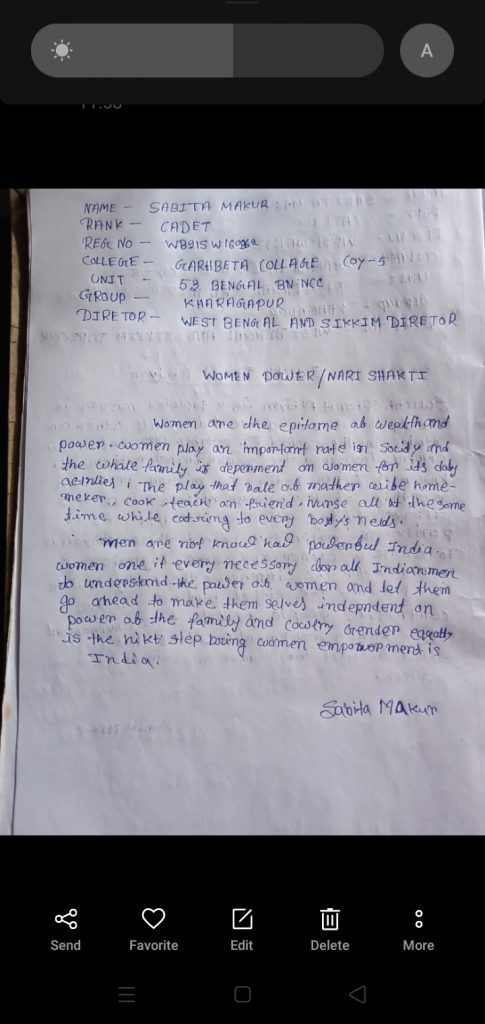 A
NAME - SABITA MAKUR
RANK - CADET
REGL NO - WB21SW160962
COLLEGE - GARHBETA COLLAGE Coy-5
UNIT - 52 BENGAL BN NCC
GROUP - KHARAGAPUR
DIRETOR - WEST BENGAL AND SIKKIM DIRETOR
WOMEN POWER/NARI SHAKTI
Women are the epitome ob wealth and
power. women play an important rate in Socity and
the whale family is depenment on women for its daly
activies. The play that role ob mather wibe home-
meker, cook, teach an friend, Nurse all at the some
time while catring to every body's neds.
men are not know had powerbul India
women one it every necessary bor all Indianmen
do understand the pawer ob women and let them
go ahead to make them selves indepndent on
power ob the family and cowtry Gender equatly
is the nikt step bring women empowerment is
India.
Sabita MAkur
Send
Favorite
Edit
Delete
More